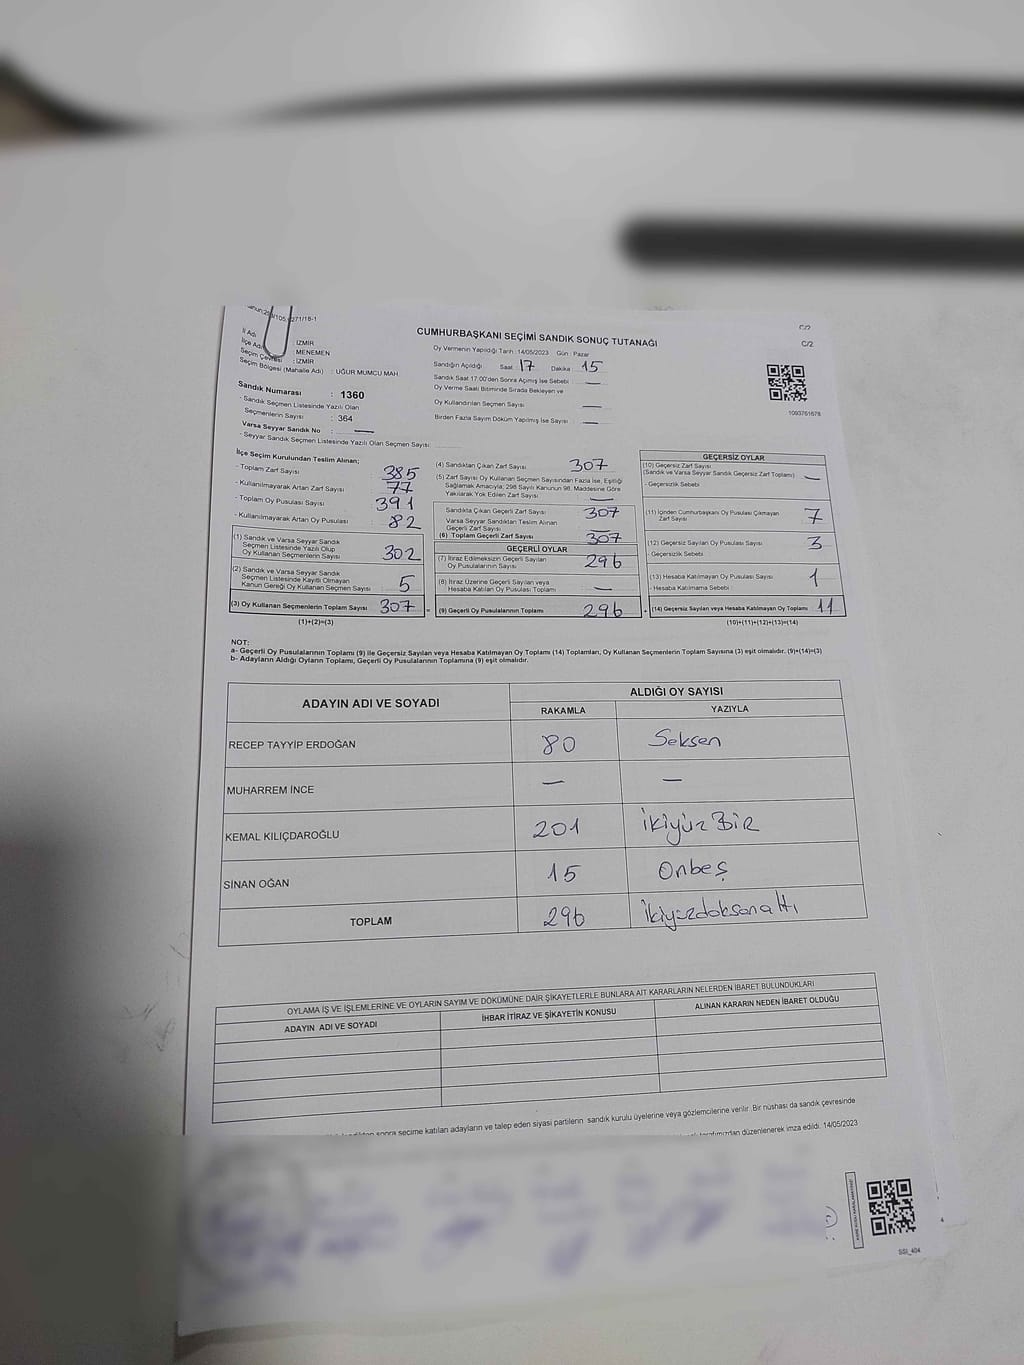 CUMHURBAŞKANI SEÇİMİ SANDIK SONUÇ TUTANAĞI
C/2
C/2
İl Adı : İZMİR
İlçe Adı : MENEMEN
Seçim Çevresi : İZMİR
Seçim Bölgesi (Mahalle Adı) : UĞUR MUMCU MAH.
Sandık Numarası : 1360
- Sandık Seçmen Listesinde Yazılı Olan
Seçmenlerin Sayısı : 364
Varsa Seyyar Sandık No : —
- Seyyar Sandık Seçmen Listesinde Yazılı Olan Seçmen Sayısı:
Oy Vermenin Yapıldığı Tarih : 14/05/2023 Gün : Pazar
Sandığın Açıldığı Saat 17 Dakika 15
Sandık Saat 17.00'den Sonra Açımış İse Sebebi : —
Oy Verme Saati Bitiminde Sırada Bekleyen ve
Oy Kullandırılan Seçmen Sayısı —
Birden Fazla Sayım Döküm Yapılmış İse Sayısı : —
1093761678
İlçe Seçim Kurulundan Teslim Alınan;
- Toplam Zarf Sayısı 385
- Kullanılmayarak Artan Zarf Sayısı 77
- Toplam Oy Pusulası Sayısı 391
- Kullanılmayarak Artan Oy Pusulası 82
(1) Sandık ve Varsa Seyyar Sandık
Seçmen Listesinde Yazılı Olup
Oy Kullanan Seçmenlerin Sayısı 302
(2) Sandık ve Varsa Seyyar Sandık
Seçmen Listesinde Kayıtlı Olmayan
Kanun Gereği Oy Kullanan Seçmen Sayısı 5
(3) Oy Kullanan Seçmenlerin Toplam Sayısı 307
(1)+(2)=(3)
(4) Sandıktan Çıkan Zarf Sayısı 307
(5) Zarf Sayısı Oy Kullanan Seçmen Sayısından Fazla İse, Eşitliği
Sağlamak Amacıyla; 298 Sayılı Kanunun 98. Maddesine Göre
Yakılarak Yok Edilen Zarf Sayısı —
Sandıkta Çıkan Geçerli Zarf Sayısı 307
Varsa Seyyar Sandıktan Teslim Alınan
Geçerli Zarf Sayısı —
(6) Toplam Geçerli Zarf Sayısı 307
GEÇERLİ OYLAR
(7) İtiraz Edilmeksizin Geçerli Sayılan
Oy Pusulalarının Sayısı 296
(8) İtiraz Üzerine Geçerli Sayılan veya
Hesaba Katılan Oy Pusulası Toplamı —
(9) Geçerli Oy Pusulalarının Toplamı 296
GEÇERSİZ OYLAR
(10) Geçersiz Zarf Sayısı
(Sandık ve Varsa Seyyar Sandık Geçersiz Zarf Toplamı) —
- Geçersizlik Sebebi
(11) İçinden Cumhurbaşkanı Oy Pusulası Çıkmayan
Zarf Sayısı 7
(12) Geçersiz Sayılan Oy Pusulası Sayısı 3
- Geçersizlik Sebebi
(13) Hesaba Katılmayan Oy Pusulası Sayısı 1
- Hesaba Katılmama Sebebi
(14) Geçersiz Sayılan veya Hesaba Katılmayan Oy Toplamı 11
(10)+(11)+(12)+(13)=(14)
NOT:
a- Geçerli Oy Pusulalarının Toplamı (9) ile Geçersiz Sayılan veya Hesaba Katılmayan Oy Toplamı (14) Toplamları, Oy Kullanan Seçmenlerin Toplam Sayısına (3) eşit olmalıdır. (9)+(14)=(3)
b- Adayların Aldığı Oyların Toplamı, Geçerli Oy Pusulalarının Toplamına (9) eşit olmalıdır.
ADAYIN ADI VE SOYADI
ALDIĞI OY SAYISI
RAKAMLA YAZIYLA
RECEP TAYYİP ERDOĞAN 80 Seksen
MUHARREM İNCE — —
KEMAL KILIÇDAROĞLU 201 İkiyüz Bir
SİNAN OĞAN 15 Onbeş
TOPLAM 296 İkiyüzdoksanaltı
OYLAMA İŞ VE İŞLEMLERİNE VE OYLARIN SAYIM VE DÖKÜMÜNE DAİR ŞİKAYETLERLE BUNLARA AİT KARARLARIN NELERDEN İBARET BULUNDUKLARI
ADAYIN ADI VE SOYADI İHBAR İTİRAZ VE ŞİKAYETİN KONUSU ALINAN KARARIN NEDEN İBARET OLDUĞU
sonra seçime katılan adayların ve talep eden siyasi partilerin sandık kurulu üyelerine veya gözlemcilerine verilir. Bir nüshası da sandık çevresinde
düzenlenerek imza edildi. 14/05/2023
SSI_404